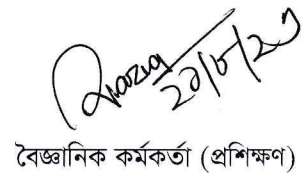 ২০/৮/২৩
বৈজ্ঞানিক কর্মকর্তা (প্রশিক্ষণ)